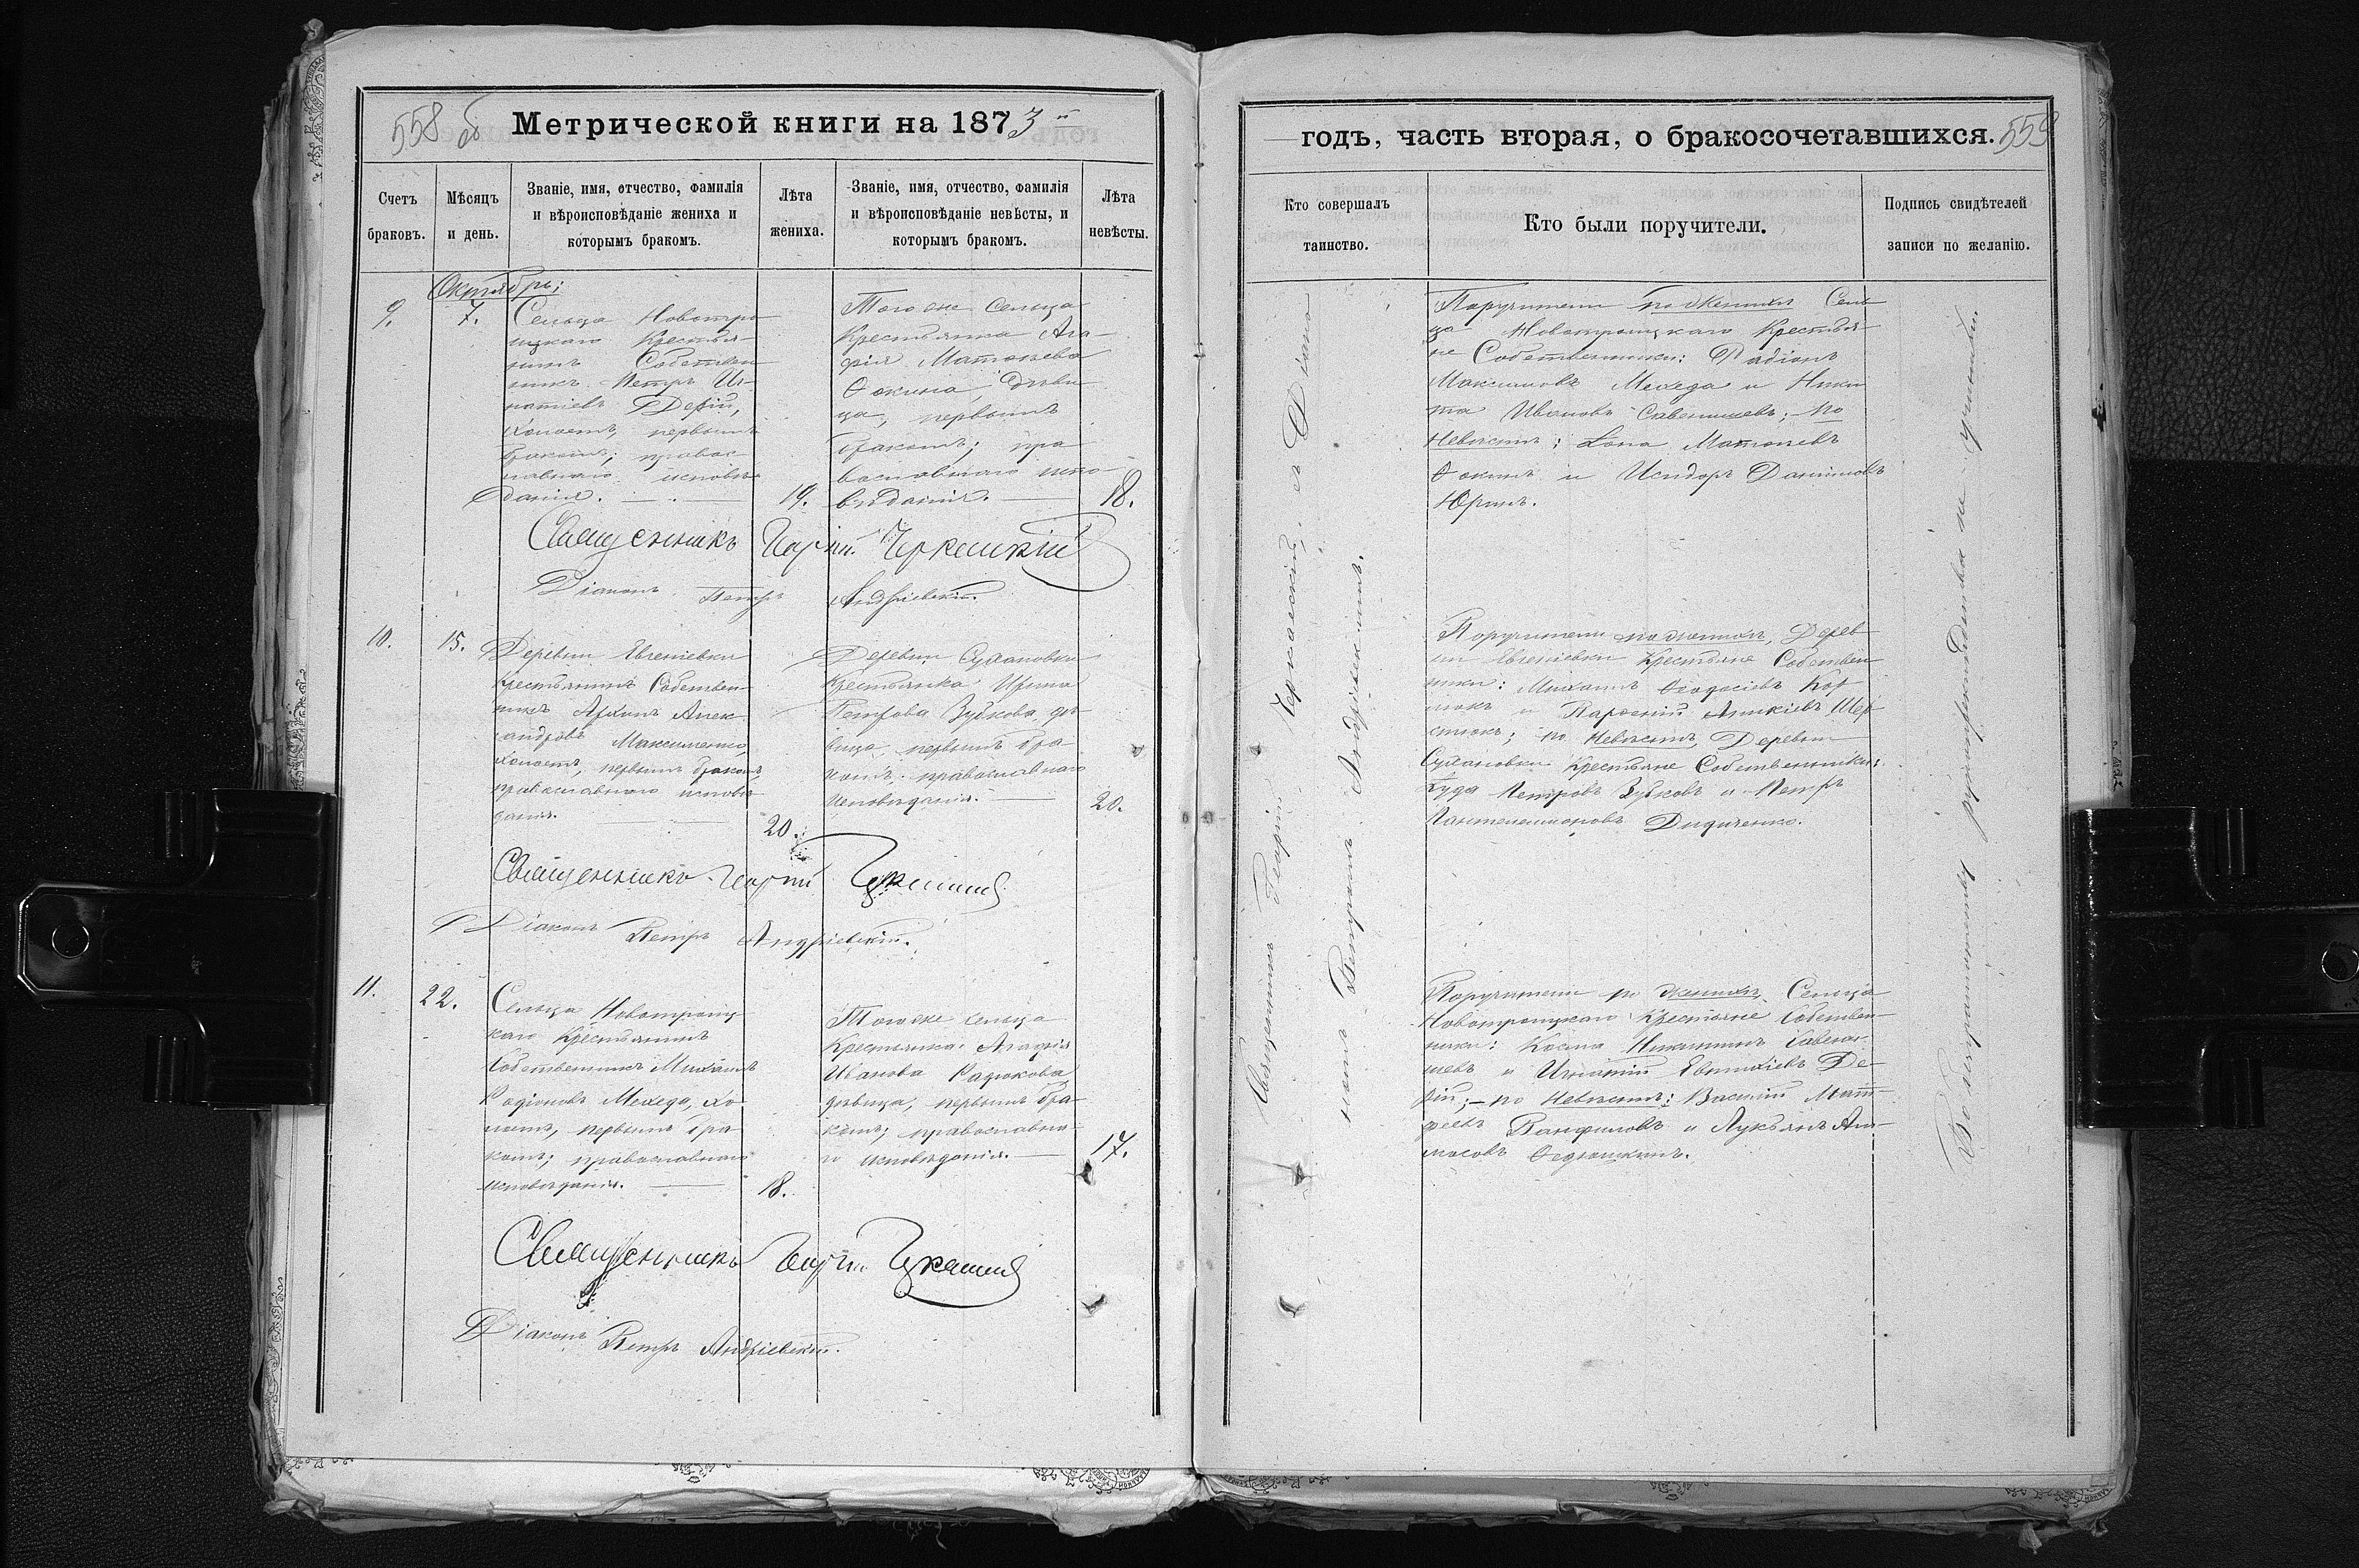 558 об
Метрической книги на 1873 й
Счетъ браковъ.
Мѣсяцъ и день.
Званіе, имя, отчество, фамилія
и вѣроисповѣданіе жениха и
которымъ бракомъ.
Лѣта жениха.
Званіе, имя, отчество, фамилія
и вѣроисповѣданіе невѣсты, и
которымъ бракомъ.
Лѣта невѣсты.
Октябрь;
9.
7.
Сельца Новотро
ицкаго Крестья-
нинъ Собствен
никъ Петръ Иг-
натіевъ Дерій,
холостъ, первымъ
бракомъ; правос
лавнаго исповѣ
данія.
19.
Того же Сельца
Крестьянка Ага-
фія Матвѣева
Ѳокина, дѣви
ца, первымъ
бракомъ; пра
вославнаго испо-
вѣданія.
18.
Священникъ Георгій Черкасскій
Діаконъ Петръ Андріевскій.
10.
15.
Деревни Евгеніевки
Крестьянинъ Собствен-
никъ Архипъ Алек
сандровъ Максименко
холостъ, первымъ бракомъ,
православнаго исповѣ
данія.
20.
Деревни Сухановки
Крестьянка Ирина
Петрова Зубкова, дѣ
вица, первымъ бра
комъ, православнаго
исповѣданія.
20.
Священникъ Георгій
Діаконъ Петръ Андріевскій.
11.
22.
Сельца Новотроиц
каго Крестьянинъ
Собственникъ Михаилъ
Родіоновъ Мехеда, хо
лостъ, первымъ бра
комъ; православнаго
исповѣданія.
18.
Того же сельца
Крестьянка Агафія
Иванова Радюкова
дѣвица, первымъ бра-
комъ; православна
го исповѣданія.
17.
Священникъ Георгій
Діаконъ Петръ Андріевскій.
годъ, часть вторая, о бракосочетавшихся.
559
Кто совершалъ таинство.
Кто были поручители.
Подпись свидѣтелей
записи по желанію.
Священникъ Георгій Черкасскій, съ Діако
номъ Петромъ Андріевскимъ.
Поручители по женихѣ Сель
ца Новотроицкаго Крестья-
не Собственники: Радіонъ
Максимовъ Мехеда и Ники
та Ивановъ Савенишевъ; по
Невѣстѣ: Матвѣевъ
Ѳокинъ и Исидоръ Даниловъ
Юринъ.
Поручители по женихѣ, Дерев
ни Евгеніевки Крестьяне Собствен
ники: Михаилъ Ѳеодосіевъ
и Парѳеній
по Невѣстѣ, Деревни
Сухановки Крестьяне Собственники:
Петровъ Зубковъ и Петръ
Пантелеимоновъ Дидиченко.
Поручители по женихѣ, Сельца
Новотроицкаго Крестьяне Собствен-
ники: Косма Никитинъ Савени
шевъ и Игнатій Евтихіевъ Де-
рій; по Невѣстѣ: Василій Мат
фѣевъ Панфиловъ и Лукьянъ Ам-
мосовъ Ѳедюшкинъ.